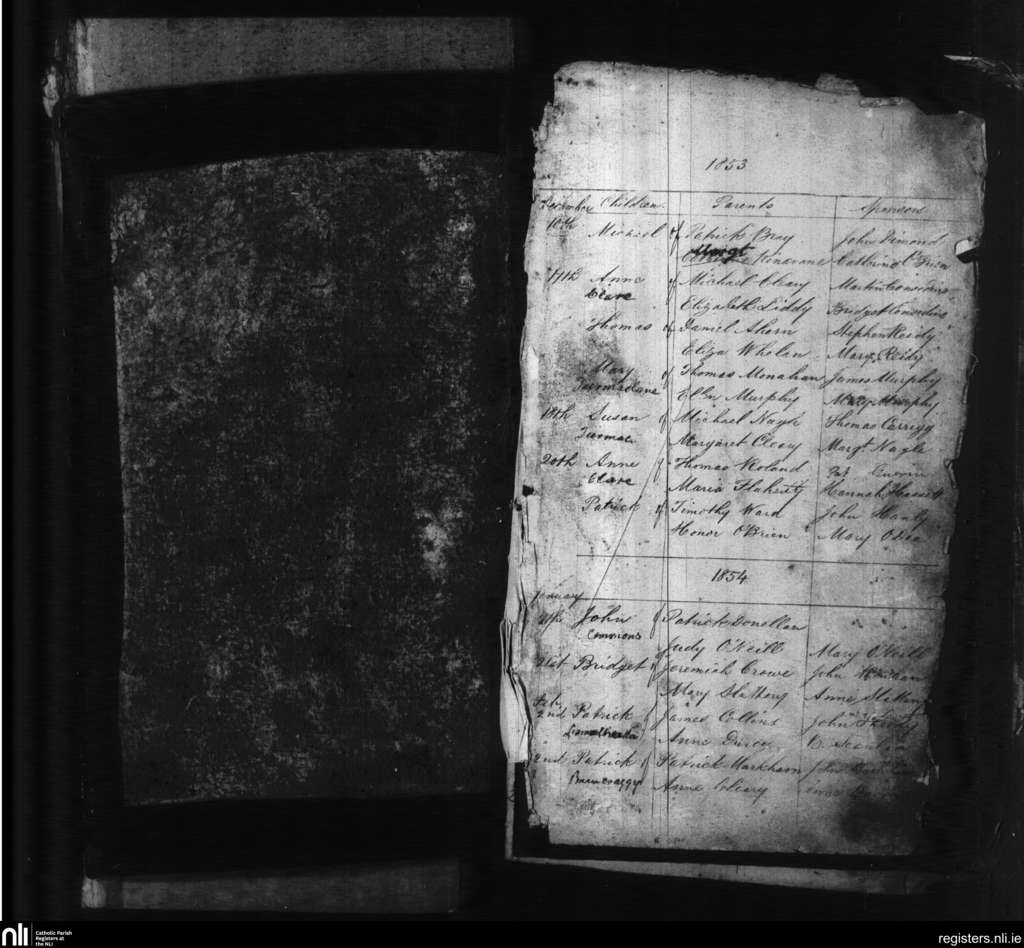 1853
December Children Parents Sponsors
10th Michael of Patrick Bray John Dimond
Margt Kinavane Catherine O'Brien
17th Anne of Michael Cleary Martin Considine
Clare Elizabeth Liddy Bridget Considine
Thomas of Daniel Ahern Stephen Reidy
Eliza Whelan Mary Reidy
Mary of Thomas Monahan James Murphy
Ellen Murphy Mary Murphy
18th Susan of Michael Nagle Thomas Carrigg
Margaret Cleary Margt Nagle
20th Anne of Thomas Neoland Pat
Clare Maria Flaherty Hannah
Patrick of Timothy Ward John Hanly
Honor O'Brien Mary O'Dea
1854
January
John of Patrick Donellan
Commons
Judy O'Neill Mary O'Neill
21st Bridget of Jeremiah Crowe John
Mary Slattery Anne Slattery
Feby
2nd Patrick of James Collins John
Anne B. Scanlan
2nd Patrick of Patrick Markham John
Anne Cleary
nli
Catholic Parish
Registers at
the NLI
registers.nli.ie